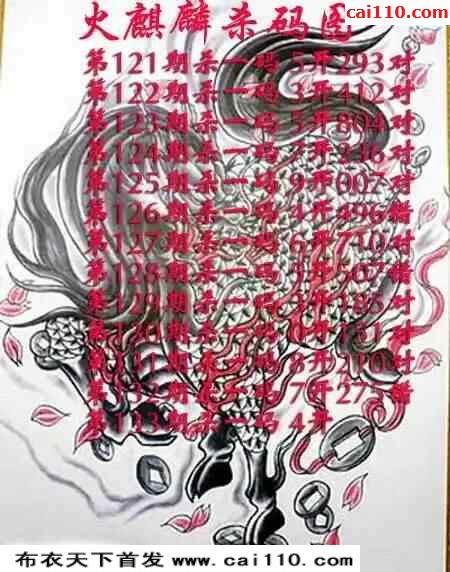 cai110.com
火麒麟杀码图
第121期杀一码 5开293对
第122期杀一码 3开412对
第123期杀一码 5开804对
第124期杀一码 开236对
第125期杀一码 9开007对
第126期杀一码 4开496错
第127期杀一码 6开710对
第128期杀一码 5开507错
第129期杀一码 开185对
第130期杀一码 开 对
第131期杀一码 8开210对
第132期杀一码 7开 错
第133期杀一码 4开
布衣天下首发 www.cai110.com